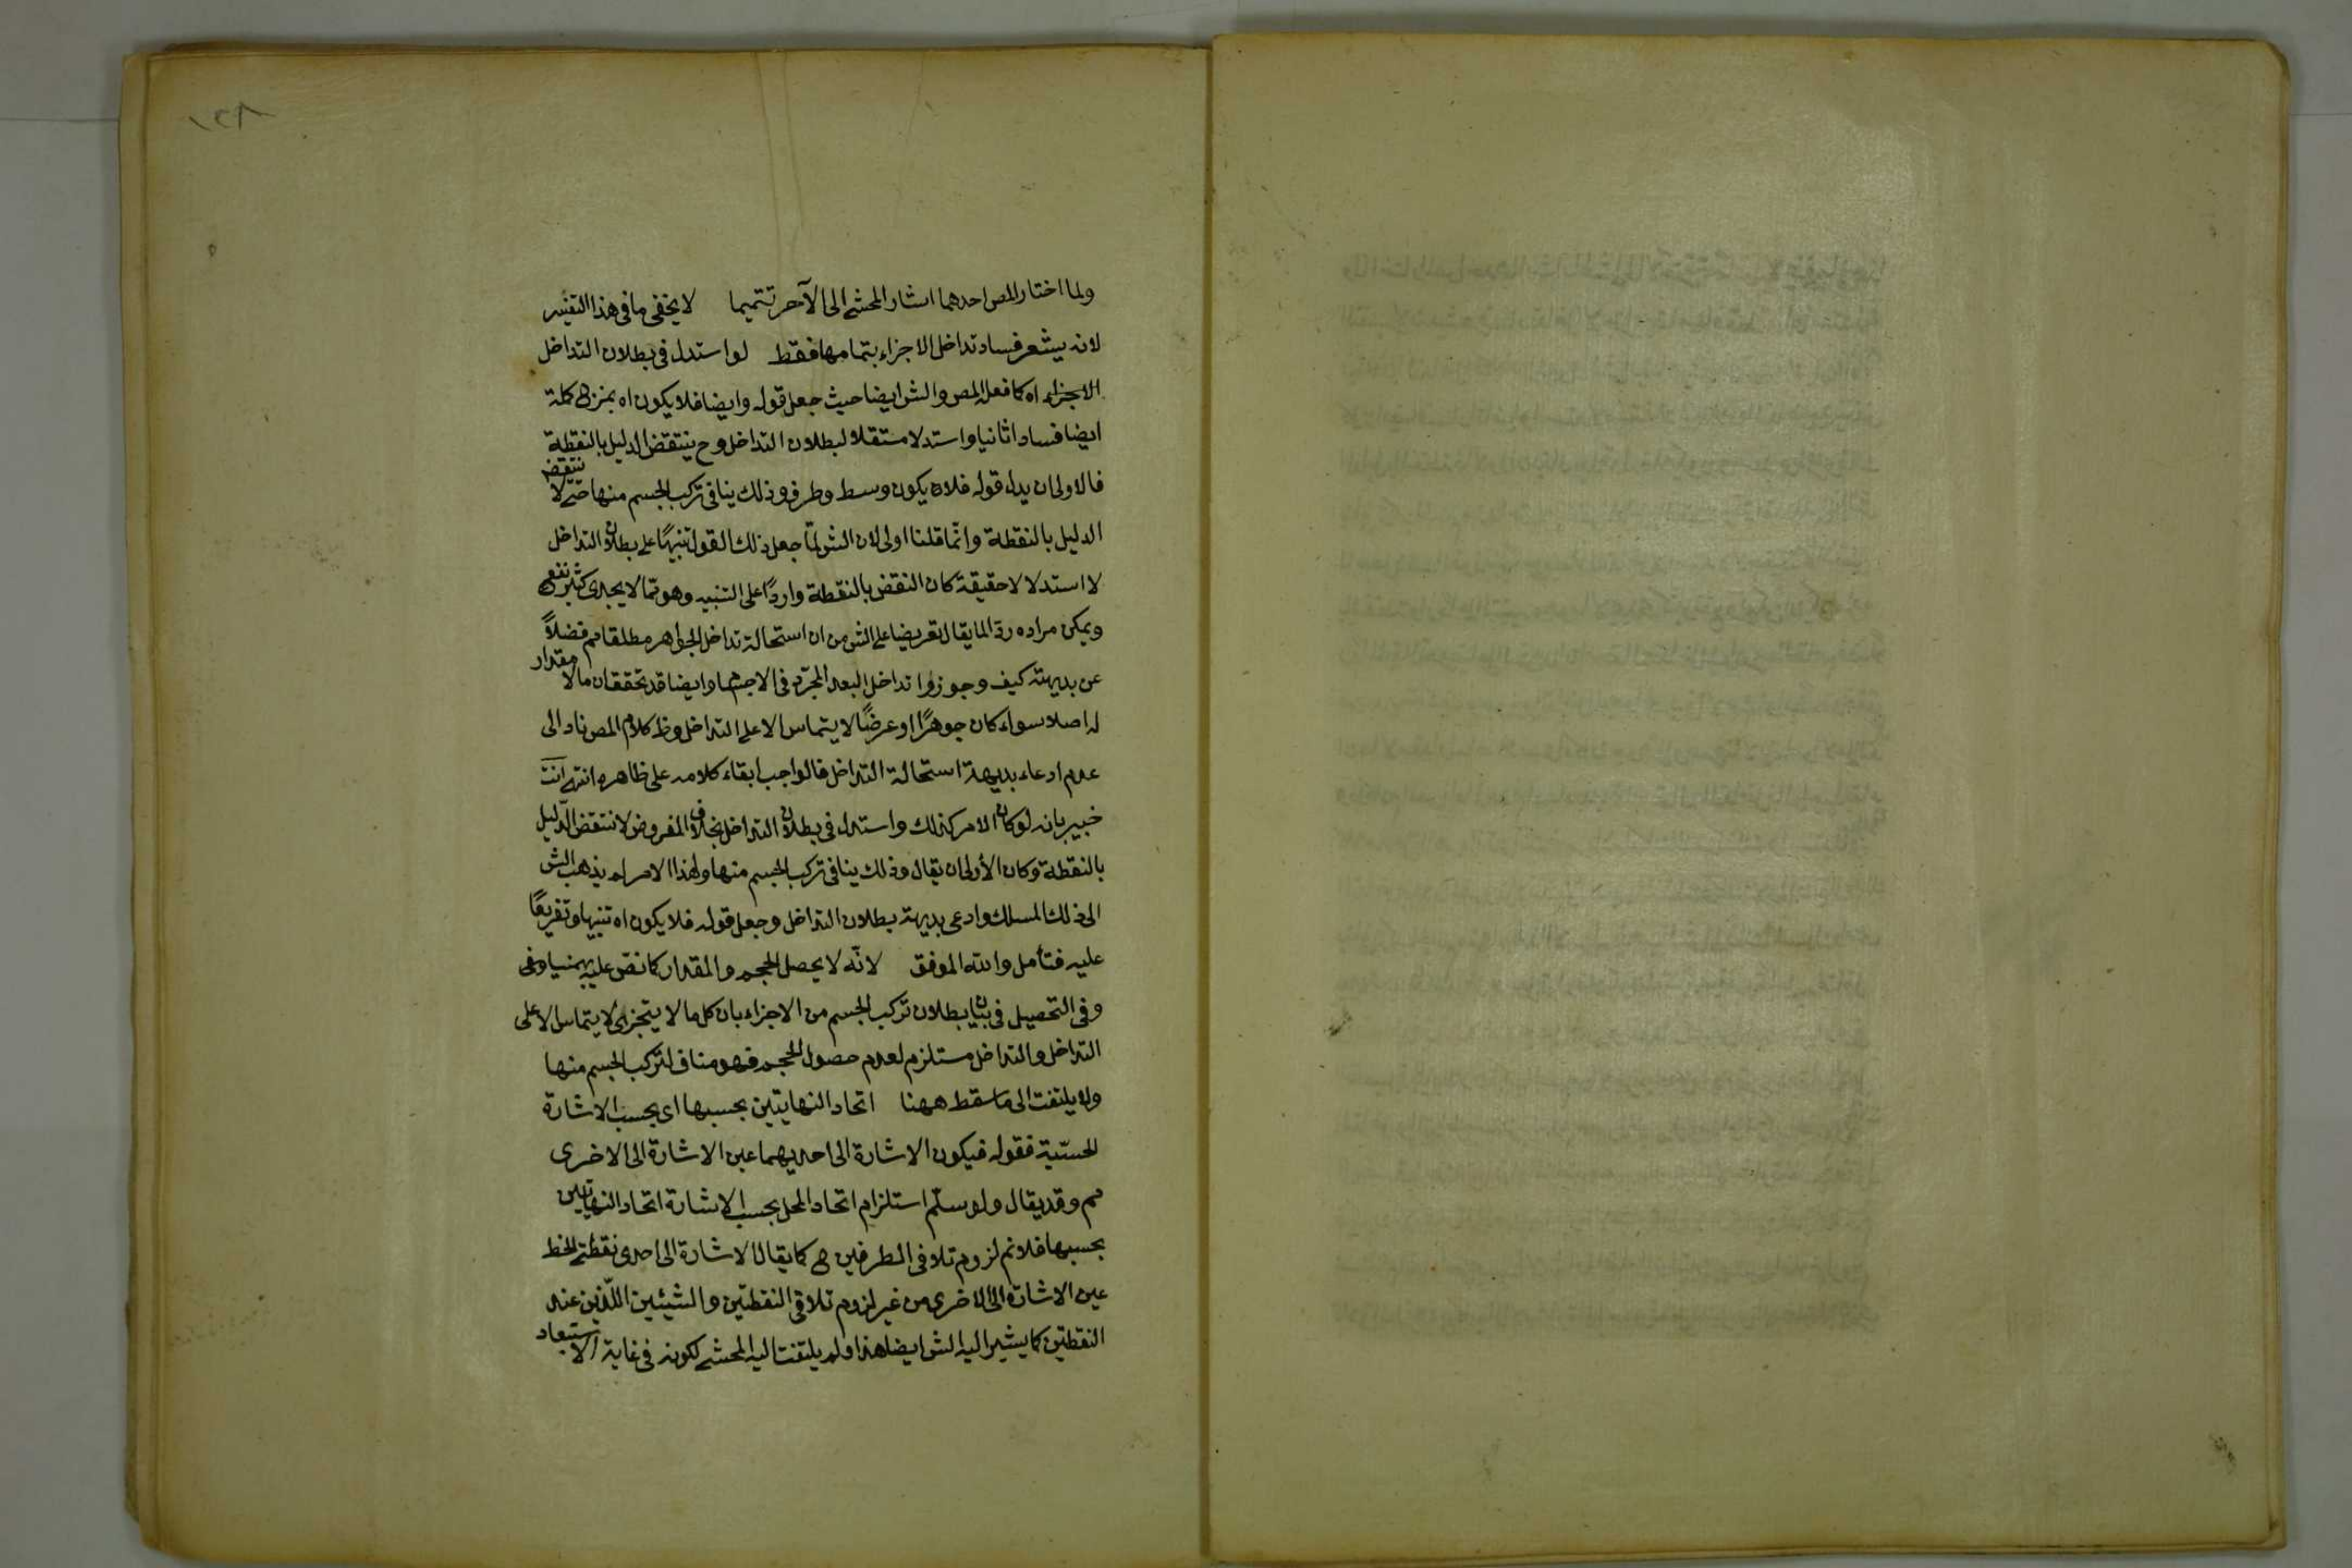 ولما اختار المص احدهما اشار المحشي الى الآخر تتميما لا يخفى ما في هذا التفسير
لانه يشعر فساد تداخل الاجزاء بتمامها فقط لو استدل في بطلان التداخل
الاجزاء اه كما فعله المص والش ايضا حيث جعل قوله وايضا فلا يكون اه بمنزلة كلمة
ايضا فسادا ثانيا واستدلا مستقلا لبطلان التداخل وح ينتقض الدليل بالنقطة
فالاولى ان يدل قوله فلا يكون وسط وطرف وذلك ينافي تركب الجسم منها حتى لا ينتقض
الدليل بالنقطة وانما قلنا اولى لان الش لما جعل ذلك القول تنبيها على بطلان التداخل
لا استدلالا حقيقة كان النقض بالنقطة واردا على التنبيه وهو مما لا يجدى كثير نفع
ويمكن مراده رد لما يقال تعريضا على الش من ان استحالة تداخل الجواهر مطلقا مم فضلاً
عن بديهته كيف وجوزوا تداخل البعد المجرد في الاجسام وايضا قد تحقق ان ما لا مقدار
له اصلا سواء كان جوهرًا او عرضًا لا يتماس الا على التداخل وظ كلام المص ناد الى
عدم ادعاء بديهة استحالة التداخل فالواجب ابقاء كلامه على ظاهره انتهى انت
خبير بانه لو كان الامر كذلك واستدل في بطلان التداخل بخلاف المفروض لانتقض الدليل
بالنقطة وكان الأولى ان يقال وذلك ينافي تركب الجسم منها ولهذا الامر لم يذهب الش
الى ذلك المسلك وادعى بديهة بطلان التداخل وجعل قوله فلا يكون اه تنبيها وتفريعًا
عليه فتأمل والله الموفق لانّه لا يحصل الحجم والمقدار كما نص عليه بهمنيار في
وفي التحصيل في بيان بطلان تركب الجسم من الاجزاء بان كل ما لا يتجزى لا يتماس الا على
التداخل والتداخل مستلزم لعدم حصول الحجم فهو مناف لتركب الجسم منها
ولا يلتفت الى ما سقط ههنا اتحاد النهايتين بحسبها اى بحسب الاشارة
الحسّية فقوله فيكون الاشارة الى احديهما عين الاشارة الى الاخرى
مم وقد يقال ولو سلّم استلزام اتحاد المحل بحسب الاشارة اتحاد النهايتين
بحسبها فلا نم لزوم تلاقى الطرفين كما يقال الاشارة الى احدى نقطتى الخط
عين الاشارة الى الاخرى من غير لزوم تلاقى النقطتين والشيئين اللذين عند
النقطتين كما يشير اليه الش ايضا هذا ولم يلتفت اليه المحشي لكونه في غاية الاستبعاد